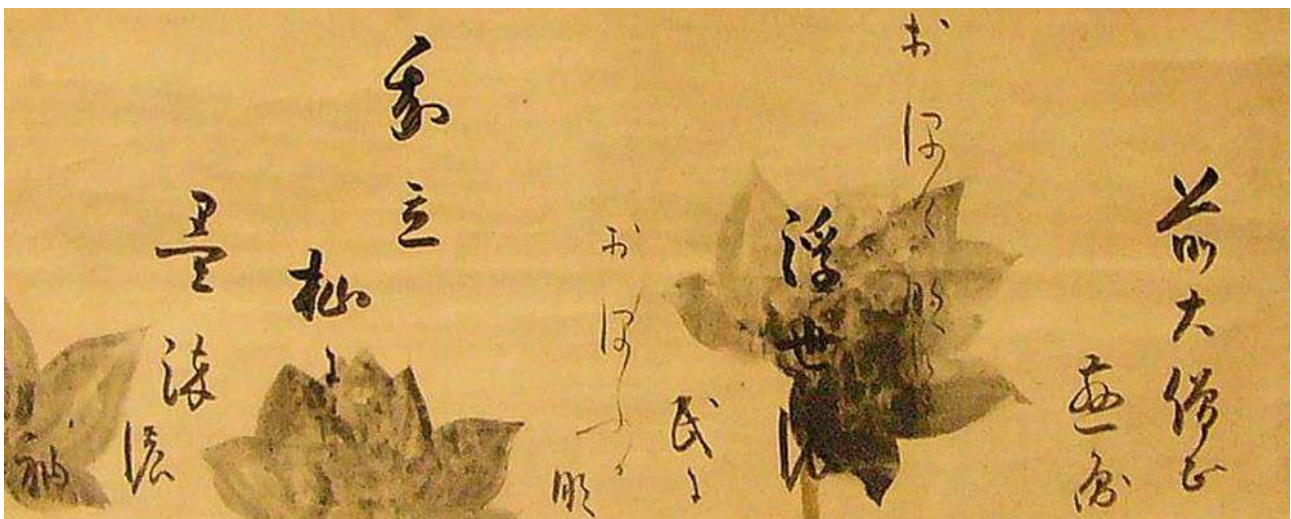 前大僧正
慈圓
おほけなく
浮世乃
民に
おほふか
那
我立
杣に
墨染
濃
袖